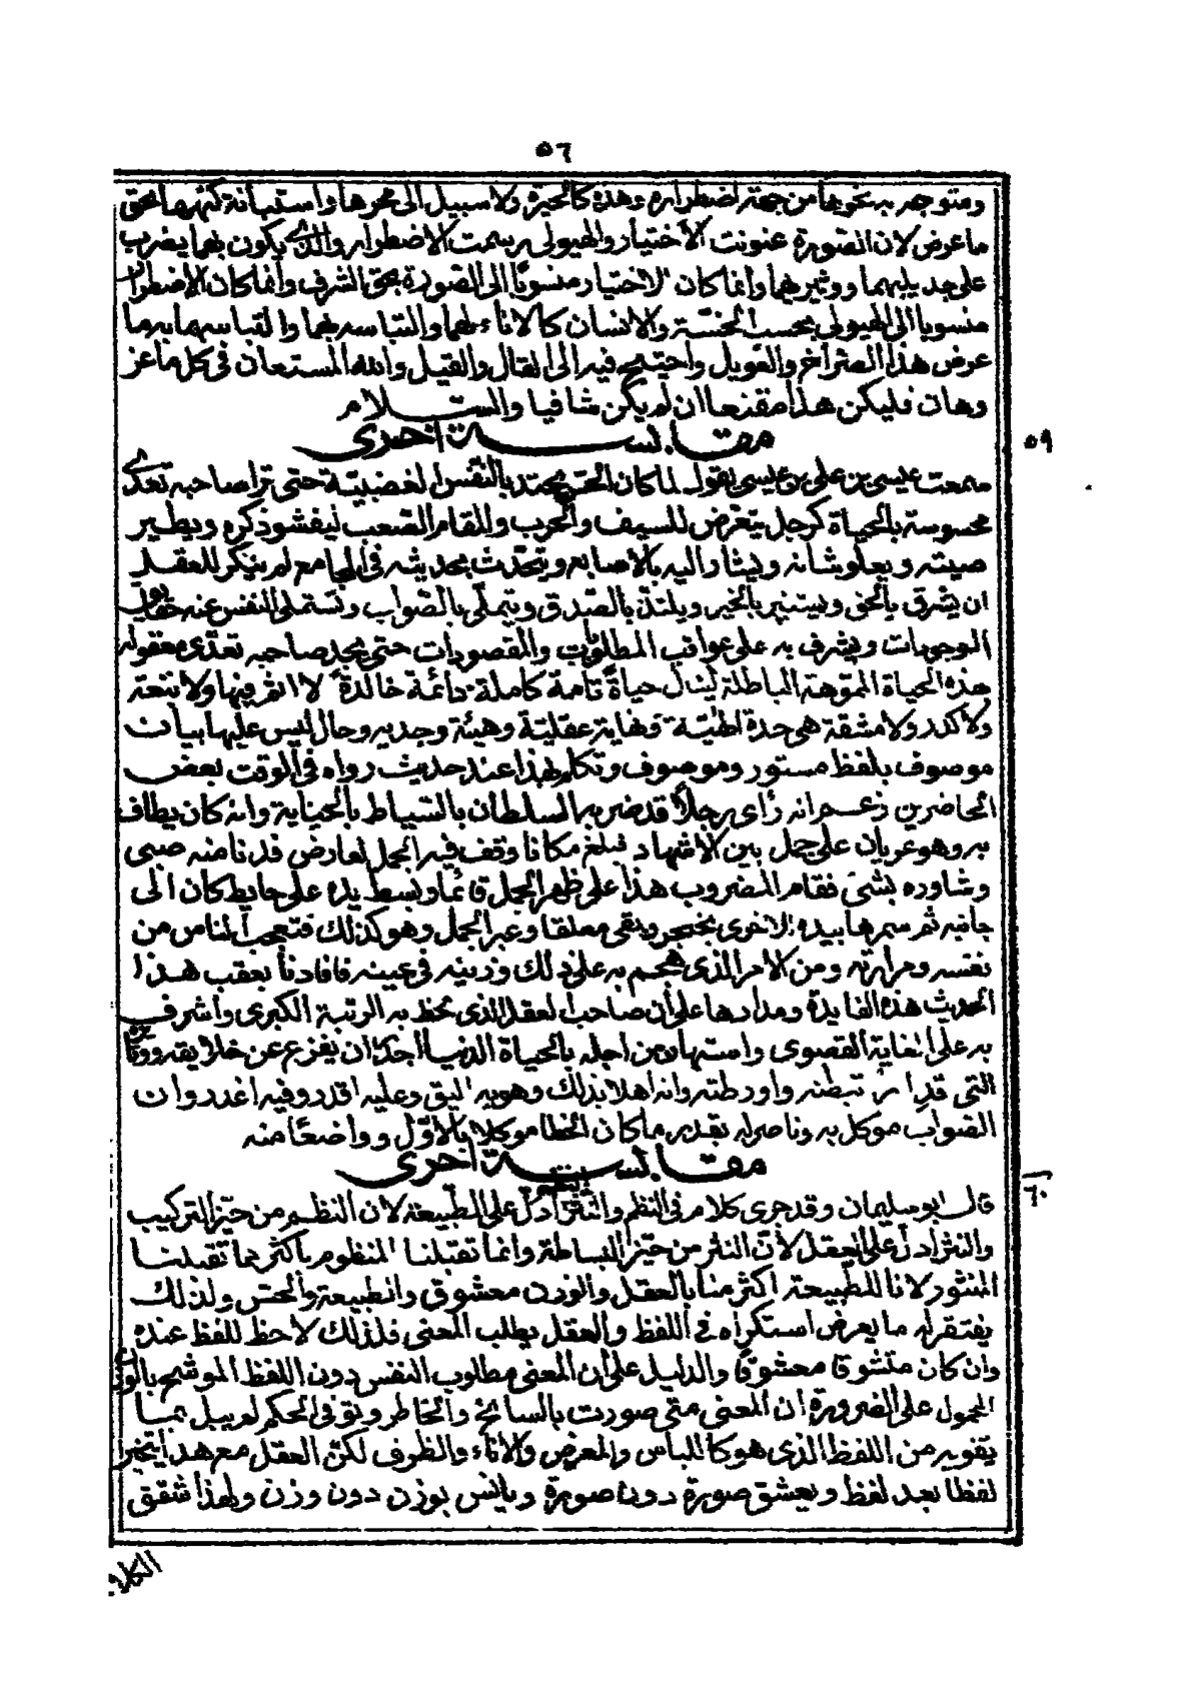 ٥٦
ومتوجه به نحوها من جهة اضطراره وهذه كالحيرة ولا سبيل الى محوها واستبانة كنهها بحق
ما عرض لان الصورة عنونت الاختيار والهيولى رسمت الاضطرار والذى يكون بهما يضرب
على جديليهما ووتيرتهما وانما كان الاختيار منسوبا الى الصورة بحق الشرف وانما كان الاضطرار
منسوبا الى الهيولى بحسب الخسة والانسان كالاناء لهما والتباسه بهما والتباسهما به ما
عرض هذا العثر آخر والعويل واحتيج فيه الى القال والقيل والله المستعان فى كل ما عز
وهان فليكن هذا مقنعا ان لم يكن شافيا والسلام
مقابسة اخرى
٥٩
سمعت عيسى بن على بن عيسى يقول لما كان الحق يجتذ بالنفس الغضبية حتى ترا صاحبه تعدى
محسوسة بالحياة كرجل يتعرض للسيف والحرب والمقام الصعب ليفشو ذكره ويطير
صيته ويعلو شانه ويشار اليه بالاصابع ويتحدث بحديثه فى المجامع لم ينكر للعقل
ان يشرق بالحق ويستنير بالخير ويلتذ بالصدق ويتملى بالصواب وتستملى النفس عنه حقايق
الموجودات ويشرف به على عواقب المطلوبات والمقصودات حتى يجد صاحبه تعدى معقوله
هذه الحياة المموهة الباطلة لينال حياة تامة كاملة دائمة خالدة لا اثر فيها ولا تبعة
ولا كدر ولا مشقة هى حدة الهية وغاية عقلية وهيئة وجديه وحال ليس عليها بيات
موصوف بلفظ مستور وموصوف وتكلم بهذا عند حديث رواه فى الوقت بعض
الحاضرين زعم انه رأى رجلا قد ضربه السلطان بالسياط بالجناية وانه كان يطاف
به وهو عريان على جمل بين الاشهاد فبلغ مكانا وقف فيه الجمل لعارض فدنا منه صبى
وشاوره بشئ فقام المضروب هذا على ظهر الجمل قائما وبسط يده على حايط كان الى
جانبه ثم سمرها بيده الاخرى بخنجر وبقى معلقا وعبر الجمل وهو كذلك فتعجب الناس من
نفسه ومرارته ومن الامر الذى هجم به على ذلك وزينه فى عينه فافادنا بعقب هذا
الحديث هذه الفايدة ومدارها على أن صاحب العقل الذى يحظ به الرتبة الكبرى واشرف
به على الغاية القصوى واستهان من اجله بالحياة الدنيا اجدر ان يفزع عن خلايقه
التى قد ارتبطته واورطته وانه اهلا بذلك وهو به اليق وعليه اقدر وفيه اغدر وان
الصواب موكل به وناصر له بقدر ما كان الخطا موكلا بالاول وواضعا منه
مقابسة اخرى
٦٠
قال ابو سليمان وقد جرى كلام فى النظم والنثر النظم ادل على الطبيعة لان النظم من حيز التركيب
والنثر ادل على العقل لأن النثر من حيز البساطة وانما تقبلنا المنظوم باكثر مما تقبلنا
المنثور لانا للطبيعة اكثر منا بالعقل والوزن معشوق والطبيعة والحس ولذلك
يفتقر له ما يعرض استكراه فى اللفظ والعقل يطلب المعنى فلذلك لا حظ للفظ عنده
وان كان متشوقا معشوقا والدليل على ان المعنى مطلوب النفس دون اللفظ الموشح بالوزن
المحمول على الضرورة ان المعنى متى صورت بالسانح والخاطر وتوفى الحكم لم يبل بما
يفوته من اللفظ الذى هو كاللباس والمعرض والاناء والظرف لكن العقل مع هذا يتخير
لفظا بعد لفظ ويعشق صورة دون صورة ويانس بوزن دون وزن ولهذا شقق
الكلام